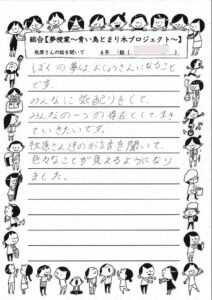 総合【夢授業～青い鳥とまり木プロジェクト～】
牧原さんの話を聞いて 6年 組（
ぼくの夢は、おしょうさんになること
です。
みんなに気配りをして、
みんなの一つの存在として、生き
ていきたいです。
牧原さんほのお話を聞いて、
色々なことが見えるようになり
ました。